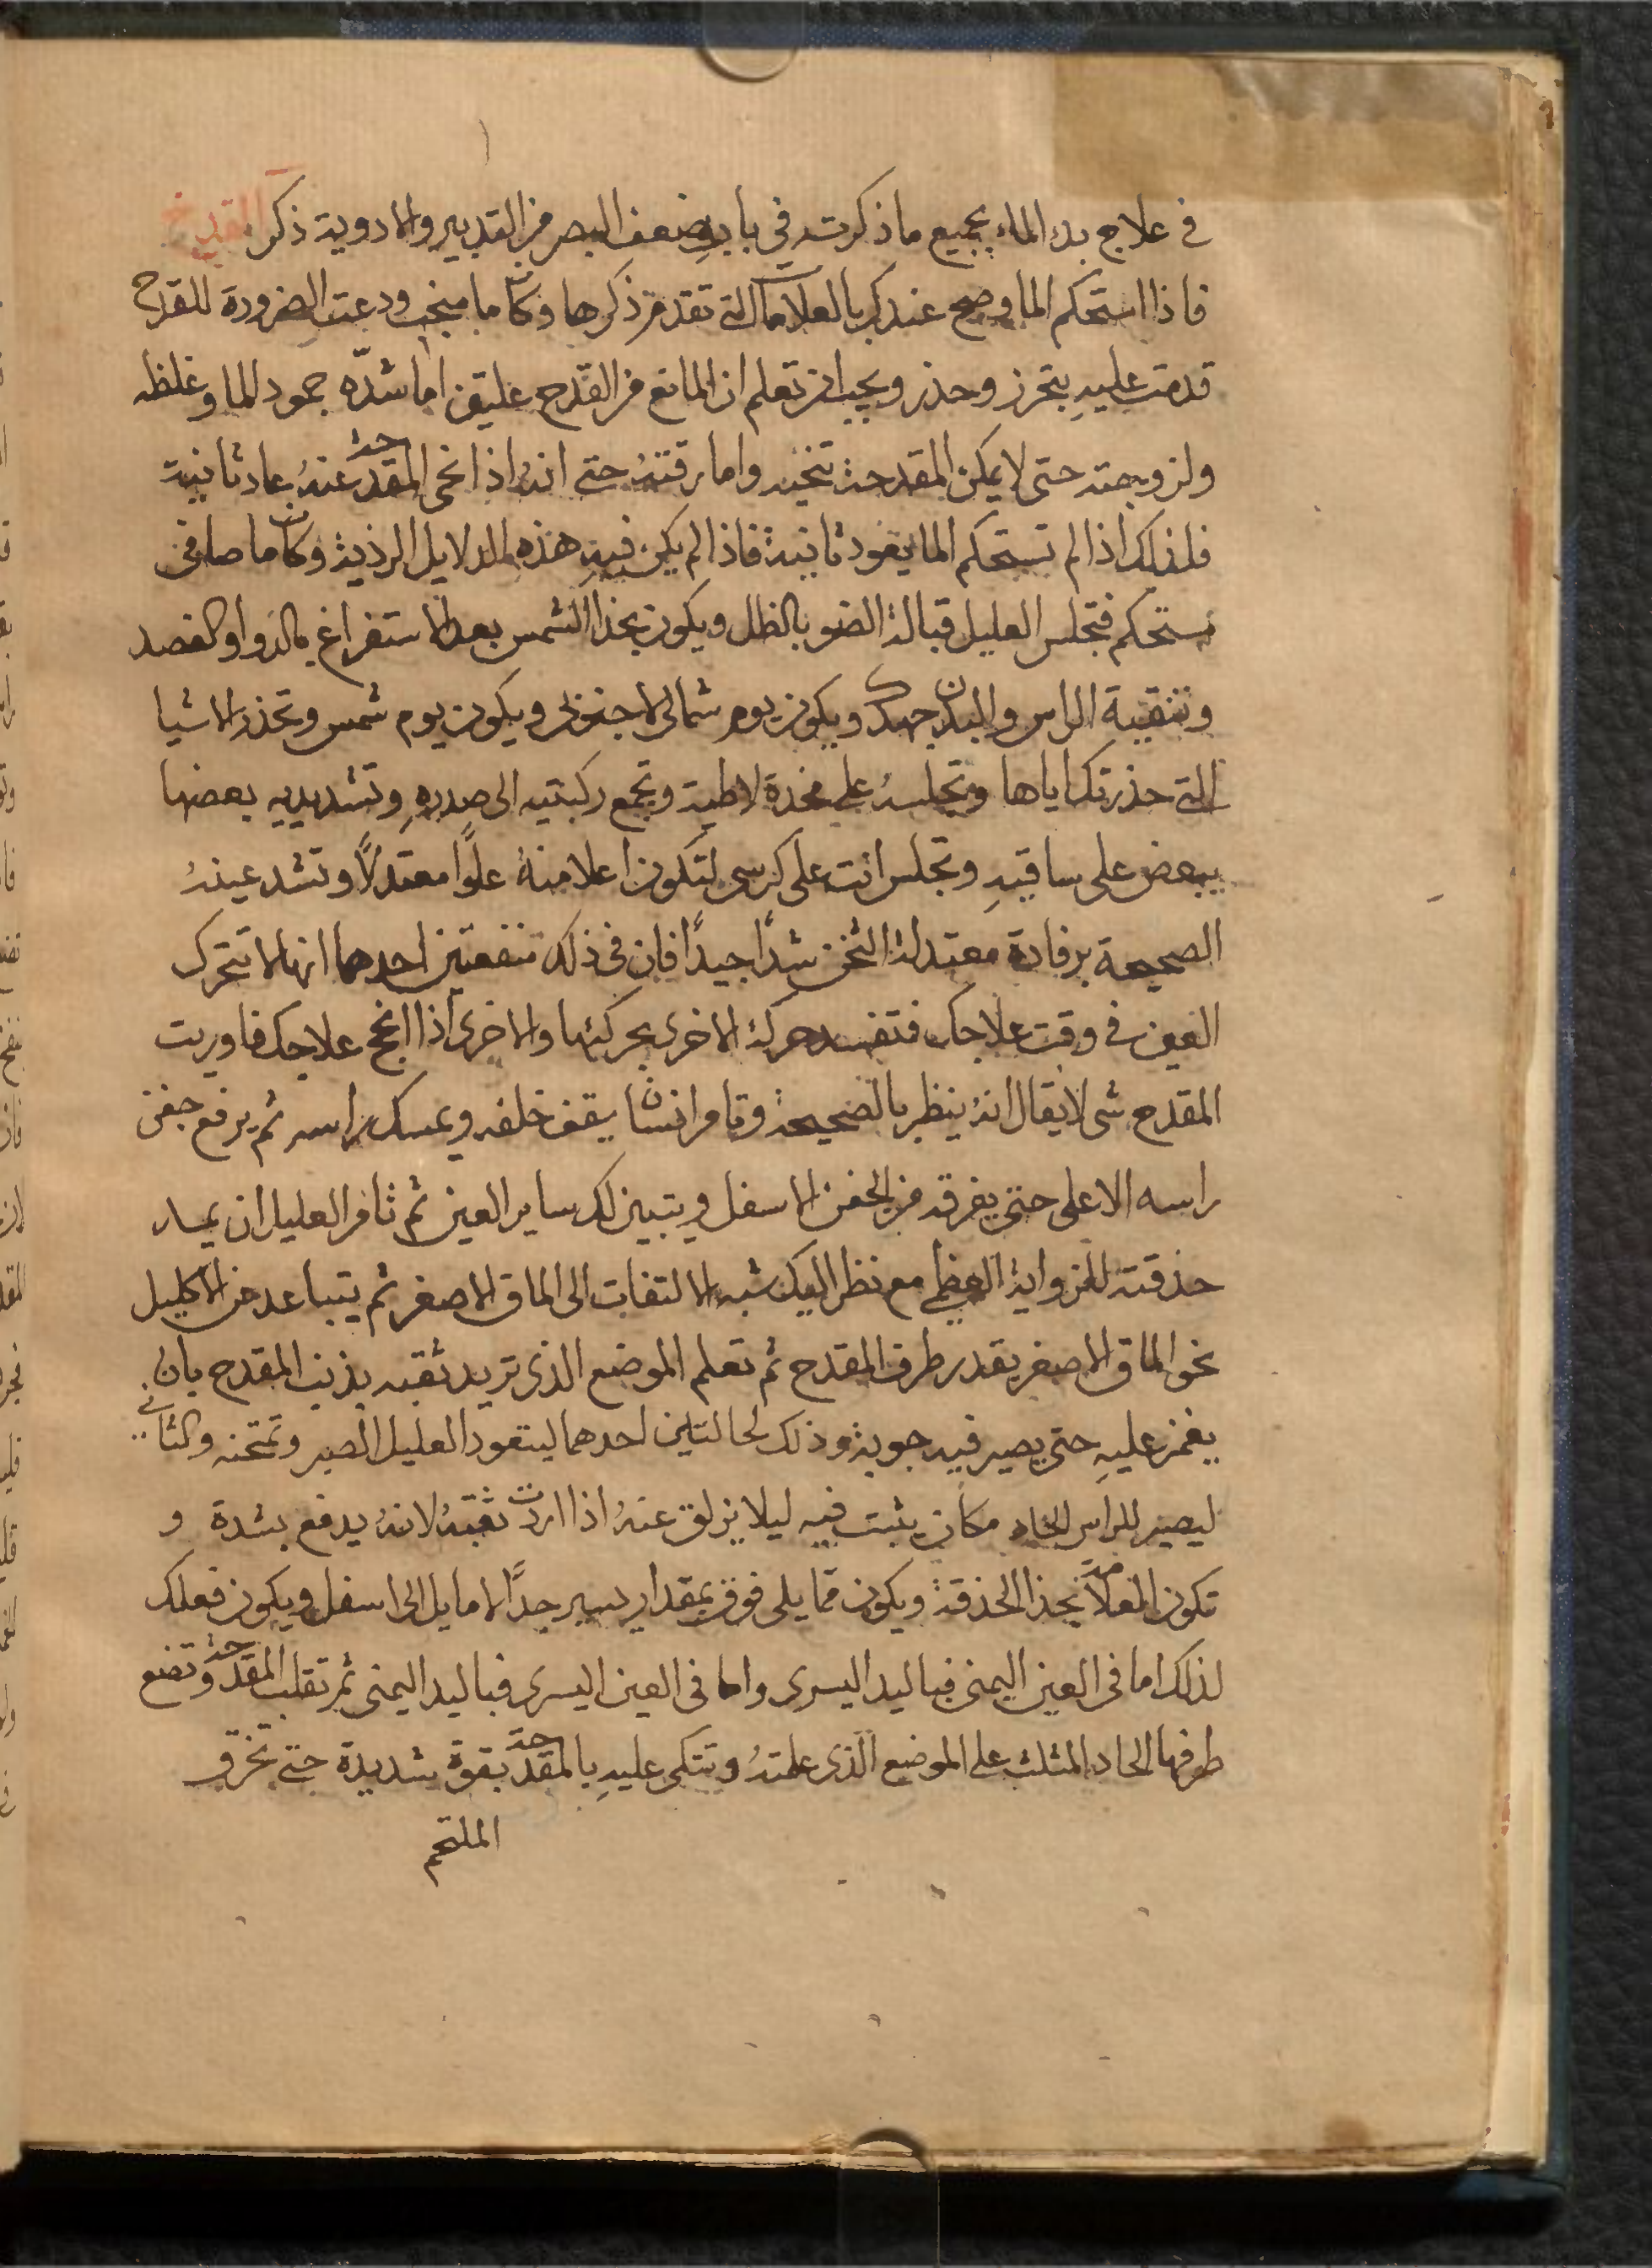 في علاج بدء الماء بجميع ما ذكرت في باب ضعف البصر من التدبير والادوية ذكر المقدح
فاذا استحكم الما وصح عندك بالعلامات التي تقدم ذكرها وكان ما منجب ودعت الضرورة للقدح
قدمت عليه بتحرز وحذر ويجب ان تعلم ان المانع من القدح علتين اما شدّه جمود الما وغلظه
ولزوجته حتى لا يمكن المقدحة تنحيه واما رقته حتى انهُ اذا انحى المقدحة عنهُ عاد ثانية
فلذلك اذا لم تستحكم الما يعود ثانية فاذا لم يكن فيه هذه الدلايل الرذية وكان ما صافى
مستحكم فتجلس العليل قبالة الضو بالظل ويكون بحذا الشمس بعد الاستفراغ بالدوا والفصد
وتنقية الراس والبدن جهدك ويكون يوم شمالى لا جنوبى ويكون يوم شمس وتحذر الاشيا
التي حذرتك اياها وتجلسهُ على مخدة لاطية وتجمع ركبتيه الى صدرهِ وتشد يديه بعضها
ببعض على ساقيهِ وتجلس انت على كرسى لتكون اعلا منهُ علوًا معتدلًا وتشد عينهُ
الصحيحة برفادة معتدلة الثخن شدًا جيدًا فان في ذلك منفعتين احدهما انها لا تتحرك
العين في وقت علاجك فتفسد حركة الاخرى بحركتها والاخرى اذا انجح علاجك فاوريت
المقدح شى لا يقال انهُ ينظر بالصحيحة وتامر انسان يقف خلفه ويمسك راسه ثم يرفع جفن
راسه الاعلى حتى يفرقه من الجفن الاسفل ويتبين لك ساير العين ثم تامر العليل ان يميل
حدقته للزواية العظمى مع نظر اليك شبه الالتفات الى الماق الاصغر ثم يتباعد عن الاكليل
نحو الماق الاصغر بقدر طرف المقدح ثم تعلم الموضع الذى تريد ثقبه بذنب المقدح بان
يغمز عليهِ حتى يصير فيه جوبة وذلك لحالتين احدهما ليتعود العليل الصبر وتمتحنه والثاني
ليصير للراس الحاد مكان يثبت فيه ليلا يزلق عنهُ اذا اردت ثقبهُ لانهُ يدفع بشدة و
تكون العلامة بحذا الحدقة ويكون مما يلى فوق بمقدار يسير جدًا لا مايل الى اسفل ويكون فعلك
لذلك اما فى العين اليمنى فباليد اليسرى واما فى العين اليسرى فباليد اليمنى ثم تقلب المقدحة وتضع
طرفها الحاد المثلث على الموضع الذى علمتهُ وتتكى عليهِ بالمقدحة بقوة شديدة حتى تخرق
الملتحم